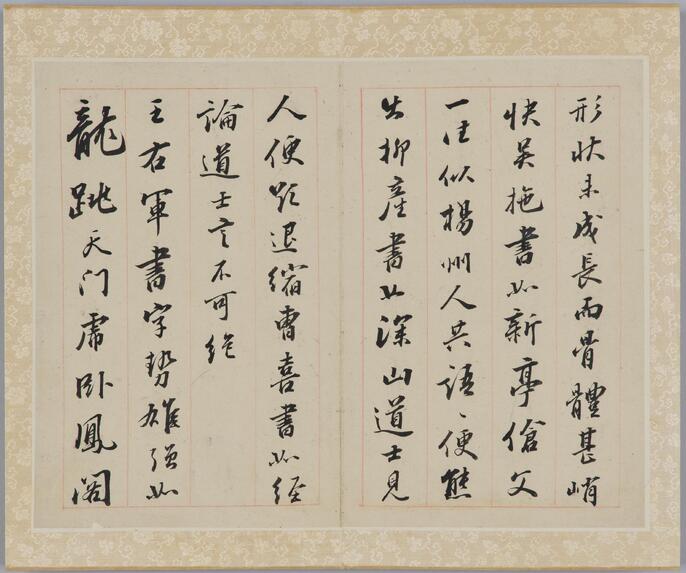 形状未成長而骨體甚峭
快吴拖書如新亭傖父
一往似楊州人共語、便態
出柳產書如深山道士見
人便欲退縮曹喜書如经
論道士言不可绝
王右軍書字勢雄强如
龍跳天门虎卧鳳阁